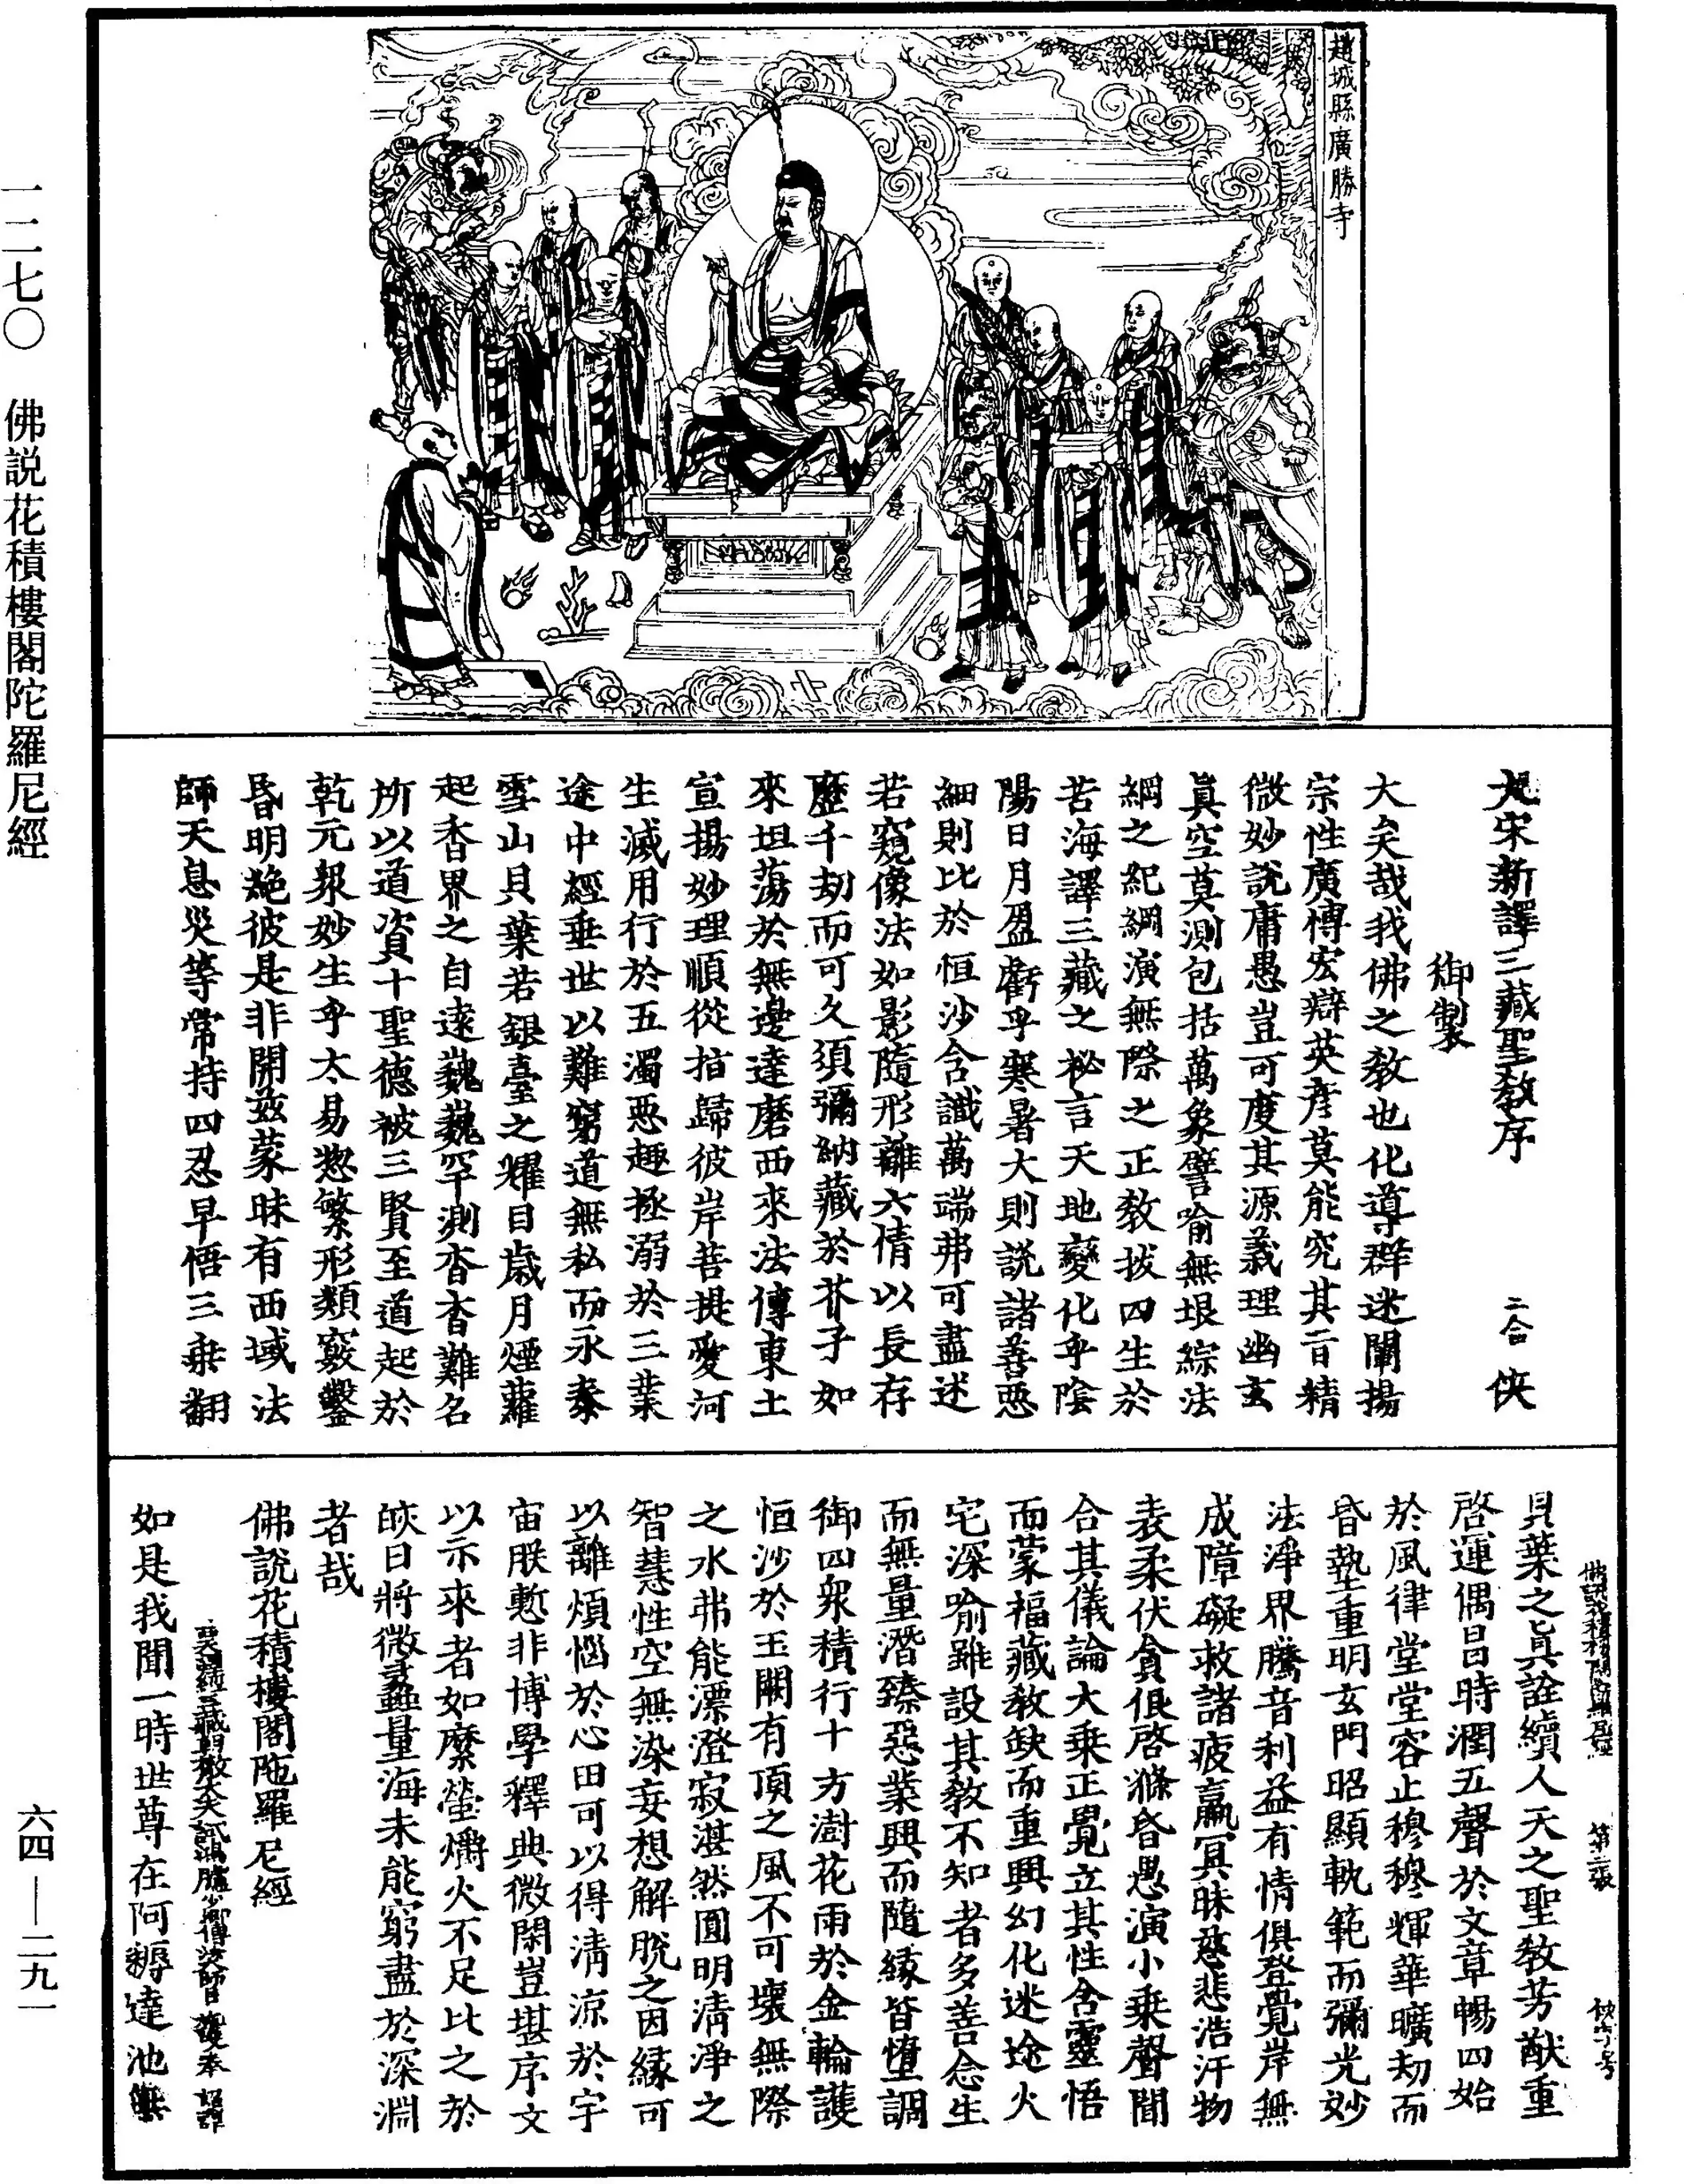 趙城縣廣勝寺
大宋新譯三藏聖教序 二合 俠
御製
大矣哉我佛之教也化導群迷闡揚
宗性廣博宏辯英彦莫能究其旨精
微妙説庸愚豈可度其源義理幽玄
真空莫測包括萬象譬喻無垠綜法
網之紀綱演無際之正教拔四生於
苦海譯三藏之秘言天地變化乎陰
陽日月盈虧乎寒暑大則説諸善惡
細則比於恒沙含識萬端弗可盡述
若窺像法如影隨形離六情以長存
歷千劫而可久須彌納藏於芥子如
來坦蕩於無邊達磨西來法傳東土
宣揚妙理順從指歸彼岸菩提愛河
生滅用行於五濁惡趣拯溺於三業
途中經垂世以難窮道無私而永泰
雪山貝葉若銀臺之耀目歲月煙蘿
起香界之自遠巍巍罕測杳杳難名
所以道資十聖德被三賢至道起於
乾元衆妙生乎太易惣繁形類竅鑿
昏明絶彼是非開兹蒙昧有西域法
師天息災等常持四忍早悟三乘翻
佛説花積樓閣陀羅尼經 第二張 俠字号
貝葉之真詮續人天之聖教芳猷重
啓運偶昌時潤五聲於文章暢四始
於風律堂堂容止穆穆輝華曠劫而
昏墊重明玄門昭顯軌範而彌光妙
法淨界騰音利益有情俱登覺岸無
成障礙救諸疲羸冥昧慈悲浩汗物
表柔伏貪佷啓滌昏愚演小乘聲聞
合其儀論大乘正覺立其性含靈悟
而蒙福藏教缺而重興幻化迷途火
宅深喻雖設其教不知者多善念生
而無量潛臻惡業興而隨緣皆墮調
御四衆積行十方澍花雨於金輪護
恒沙於玉闕有頂之風不可壞無際
之水弗能漂澄寂湛然圓明清淨之
智慧性空無染妄想解脱之因緣可
以離煩惱於心田可以得清涼於宇
宙朕慙非博學釋典微閑豈堪序文
以示來者如縻螢爝火不足比之於
皎日將微蠡量海未能窮盡於深淵
者哉
佛説花積樓閣陀羅尼經
西天譯經三藏朝散大夫試鴻臚少卿傳法大師臣施護奉 詔譯
如是我聞一時世尊在阿耨達池與
一二七〇 佛説花積樓閣陀羅尼經
六四—二九一